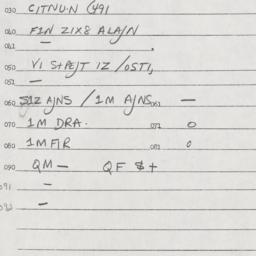 030 CITNUN (491
040 FIN ZIX8 ALAJN
042 — .
050 VI StPEJT IZ /OSTI,
051 —
060 SIZ AJNS / 1M AJNS 061 —
070 1M DRA. 072 0
080 1M FIR 082 0
090 QM — QF $ +
091 —
092 —